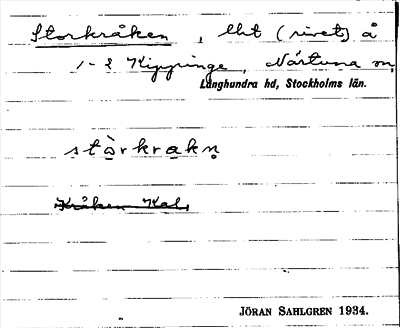 Storkråken, lht (rivet) å
1-2 Kippinge, Närtuna sn,
Långhundra hd, Stockholms län.
stò̱rkrakn̥
Kråken Kal.
JÖRAN SAHLGREN 1934.